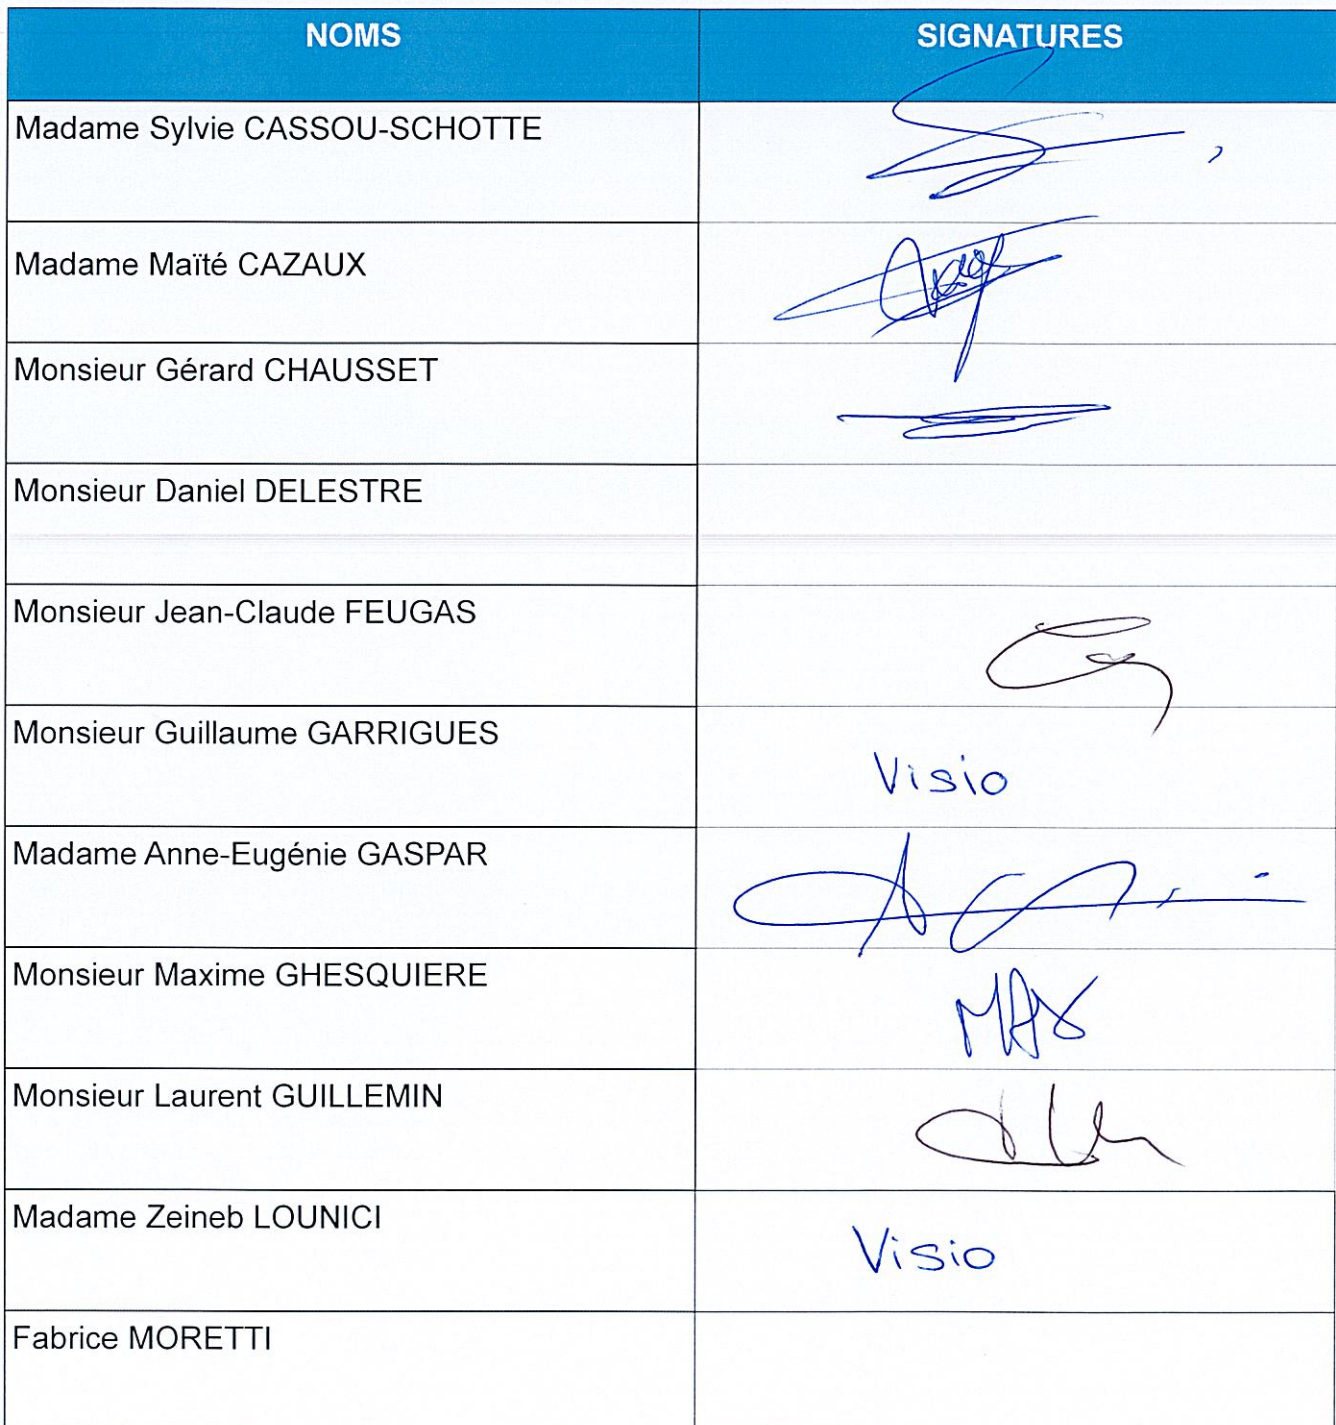 NOMS SIGNATURES
Madame Sylvie CASSOU-SCHOTTE
Madame Maïté CAZAUX
Monsieur Gérard CHAUSSET
Monsieur Daniel DELESTRE
Monsieur Jean-Claude FEUGAS
Monsieur Guillaume GARRIGUES
Visio
Madame Anne-Eugénie GASPAR
Monsieur Maxime GHESQUIERE
MAX
Monsieur Laurent GUILLEMIN
Madame Zeineb LOUNICI
Visio
Fabrice MORETTI